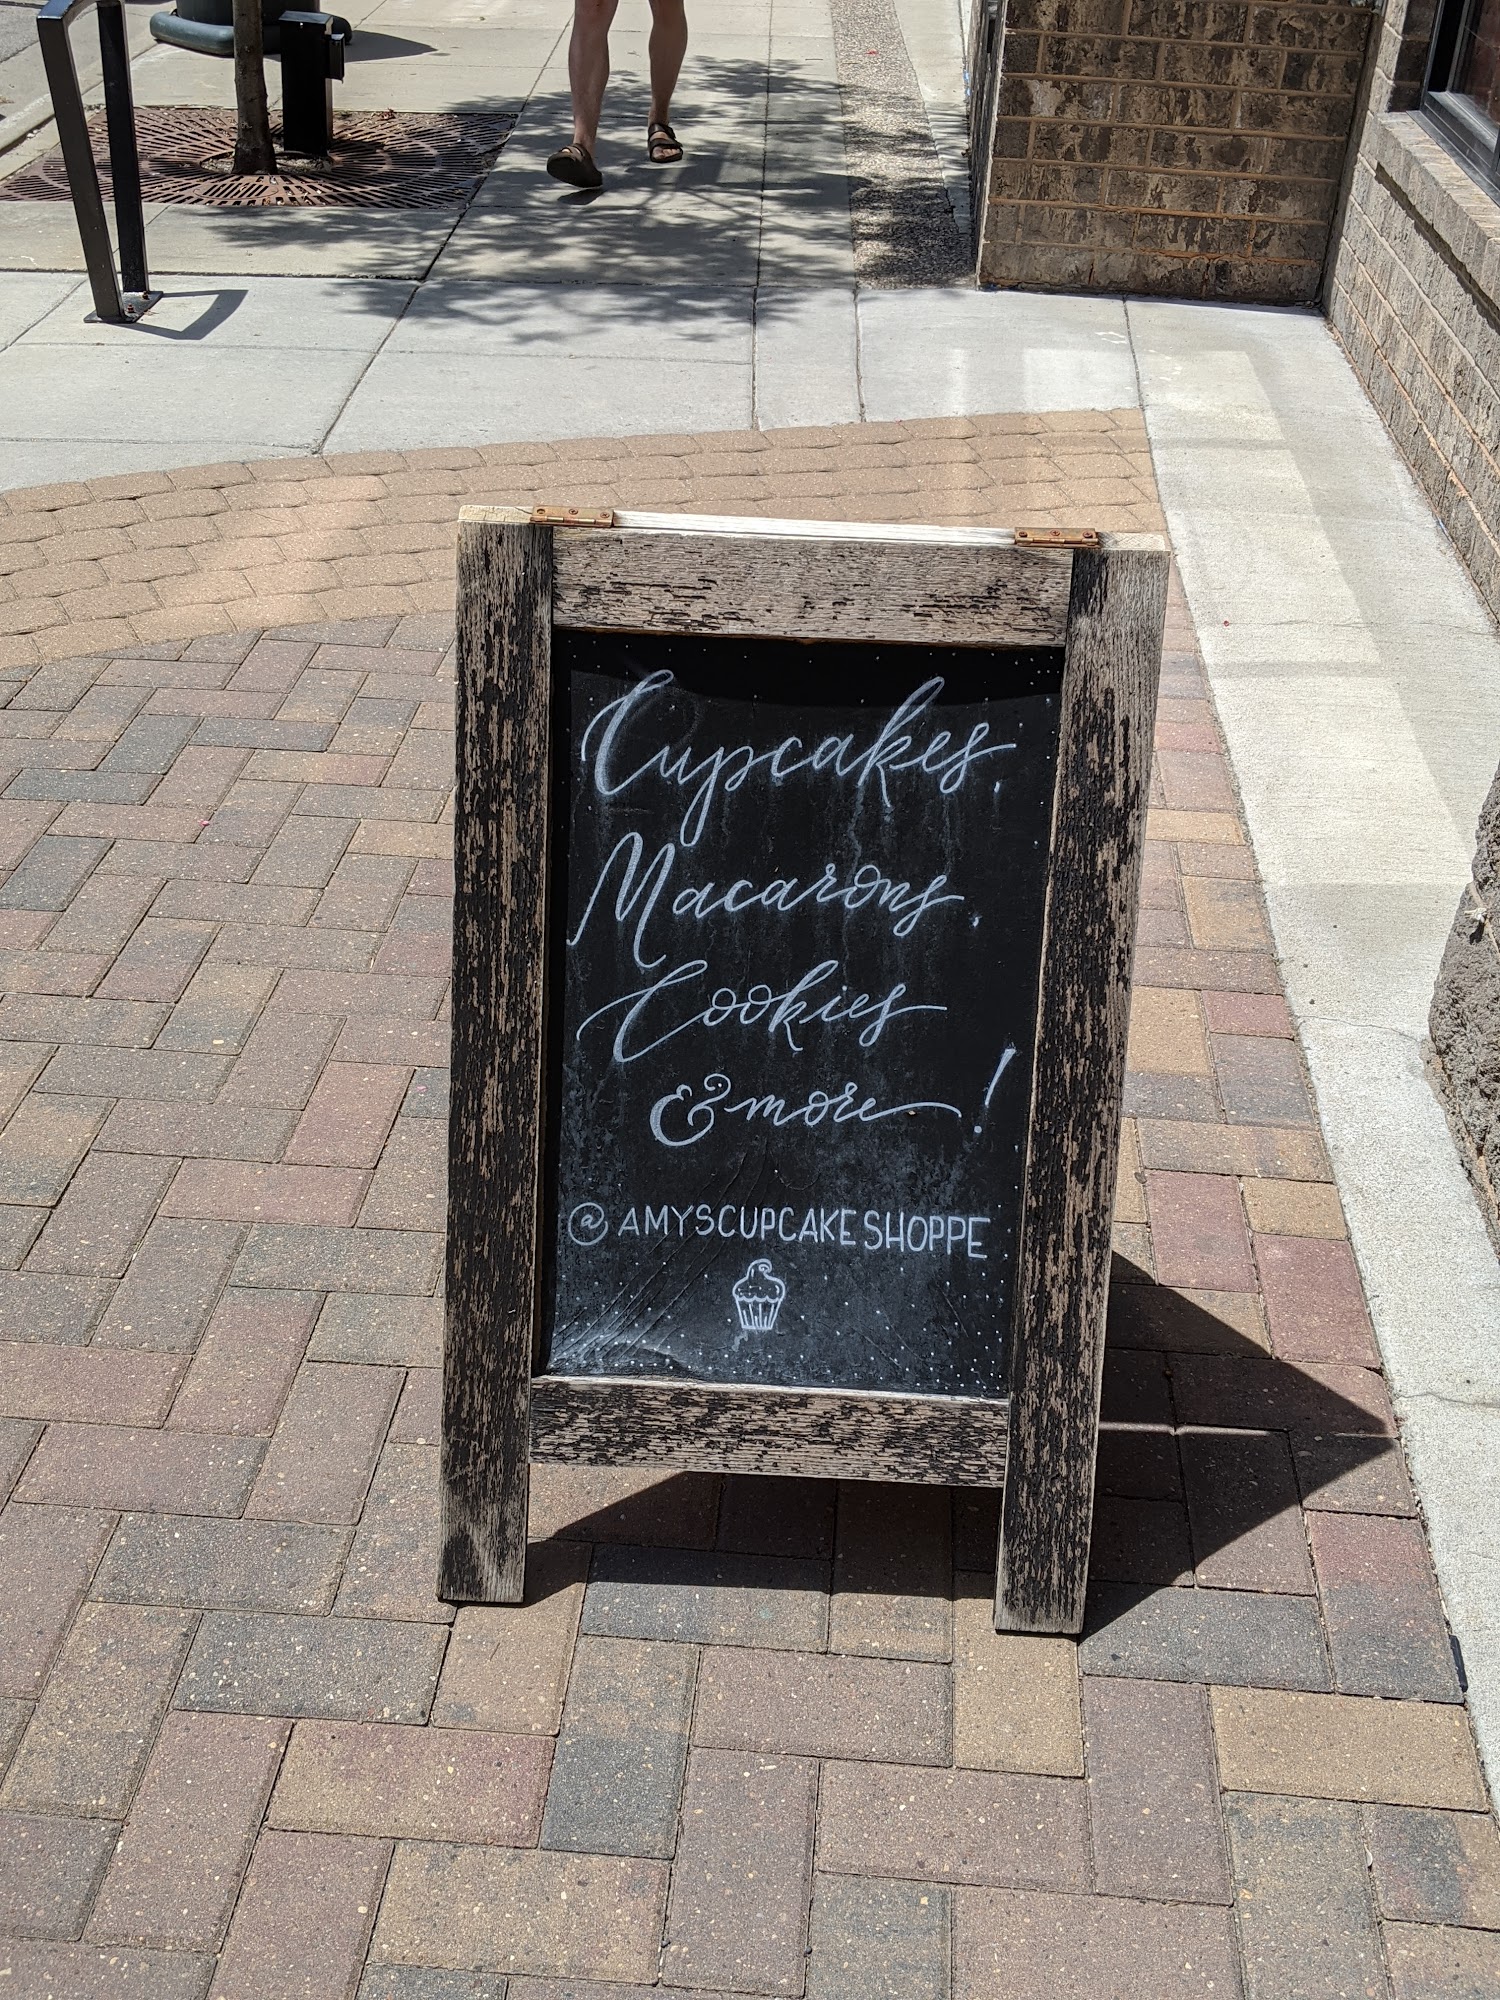 Cupcakes,
Macarons,
Cookies
& more!
@AMYSCUPCAKESHOPPE